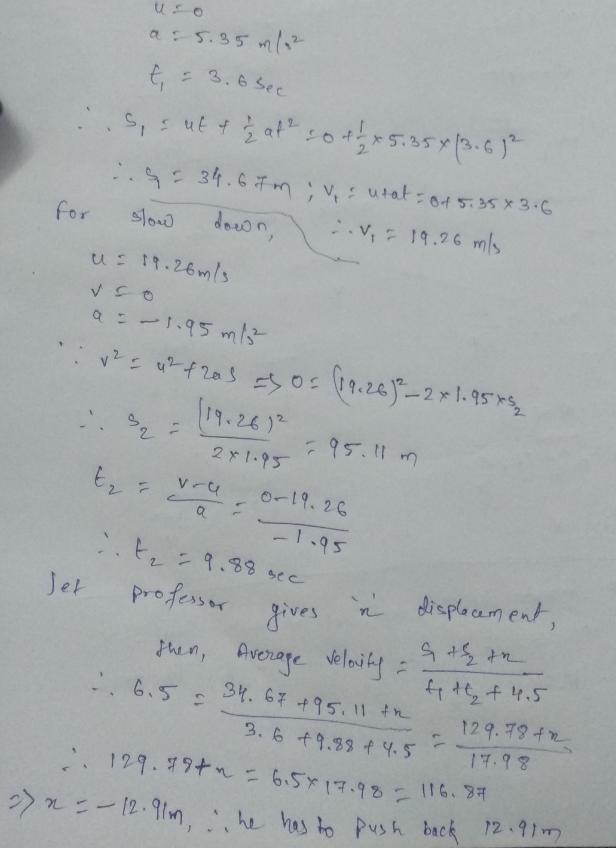 u = 0
a = 5.35 m/s²
t₁ = 3.6 sec
∴ s₁ = ut + ½ at² = 0 + ½ × 5.35 × (3.6)²
∴ s₁ = 34.67m ; v₁ = u+at = 0+5.35×3.6
∴ v₁ = 19.26 m/s
for slow down,
u = 19.26m/s
v = 0
a = -1.95 m/s²
∵ v² = u²+2as ⇒ 0 = (19.26)² - 2×1.95×s₂
∴ s₂ = (19.26)² / 2×1.95 = 95.11 m
t₂ = v-u / a = 0-19.26 / -1.95
∴ t₂ = 9.88 sec
Let professor gives 'x' displacement,
then, Average velocity = s₁+s₂+x / t₁+t₂+4.5
∴ 6.5 = 34.67+95.11+x / 3.6+9.88+4.5 = 129.78+x / 17.98
∴ 129.78+x = 6.5×17.98 = 116.87
⇒ x = -12.91m, ∴ he has to push back 12.91m